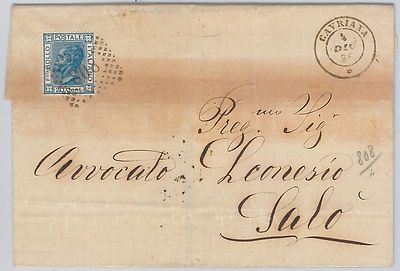 CAVRIANA
4
DIC
76
FRANCO BOLLO POSTALE ITALIANO
20 CENT.
Preg.mo Sig.
Avvocato Leonesio
Salò
808
4